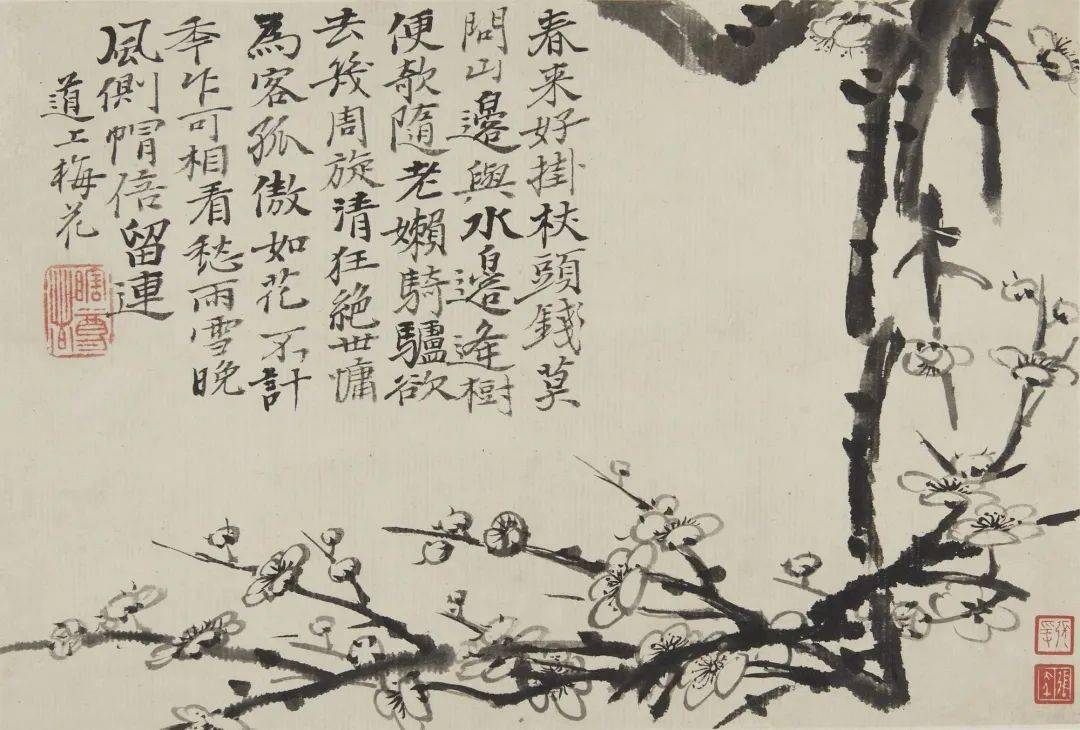 春来好掛杖頭錢莫
問山邊與水邊逢樹
便欹隨老嬾騎驢欲
去幾周旋清狂絕世慵
為客孤傲如花不計
秊乍可相看愁雨雪晚
風側帽倍留連
道上梅花
瞎尊者